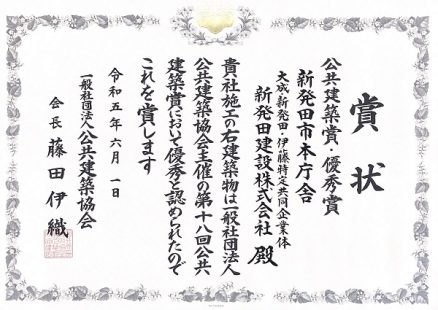 賞状
公共建築賞・優秀賞
新発田市本庁舎
大成・新発田・伊藤特定共同企業体
新発田建設株式会社 殿
貴社施工の右建築物は一般社団法人
公共建築協会主催の第十八回公共
建築賞において優秀と認められたので
これを賞します
令和五年六月一日
一般社団法人公共建築協会
会長 藤田伊織